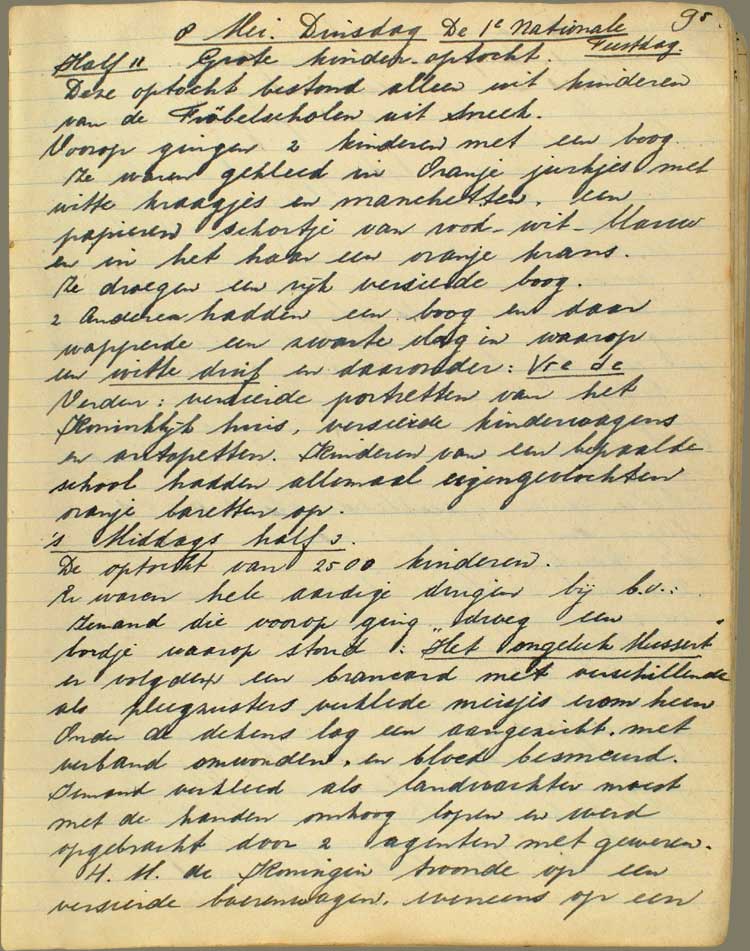 95.
8 Mei. Dinsdag De 1e Nationale
Feestdag.
Half 11 Grote kinder-optocht.
Deze optocht bestond alleen uit kinderen
van de Fröbelscholen uit Sneek.
Voorop gingen 2 kinderen met een boog.
Ze waren gekleed in Oranje jurkjes met
witte kraagjes en manchetten, een
papieren schortje van rood-wit-blauw
en in het haar een oranje krans.
Ze droegen een rijk versierde boog.
2 Anderen hadden een boog en daar
wapperde een zwarte vlag in waarop
een witte duif en daaronder: Vrede
Verder: versierde portretten van het
Koninklijk huis, versierde kinderwagens
en autopetten. Kinderen van een bepaalde
school hadden allemaal eigengevlochten
oranje baretten op.
's Middags half 2.
De optocht van 2500 kinderen.
Er waren hele aardige dingen bij b.v.:
Iemand die voorop ging droeg een
bordje waarop stond: "Het ongeluk Mussert"
er volgden een brancard met verschillende
als pleegzusters verklede meisjes erom heen
Onder de dekens lag een aangezicht, met
verband omwonden, en bloed besmeurd.
Iemand verkleed als landwachter moest
met de handen omhoog lopen en werd
opgebracht door 2 agenten met geweren.
H. M. de Koningin troonde op een
versierde boerenwagen, eveneens op een